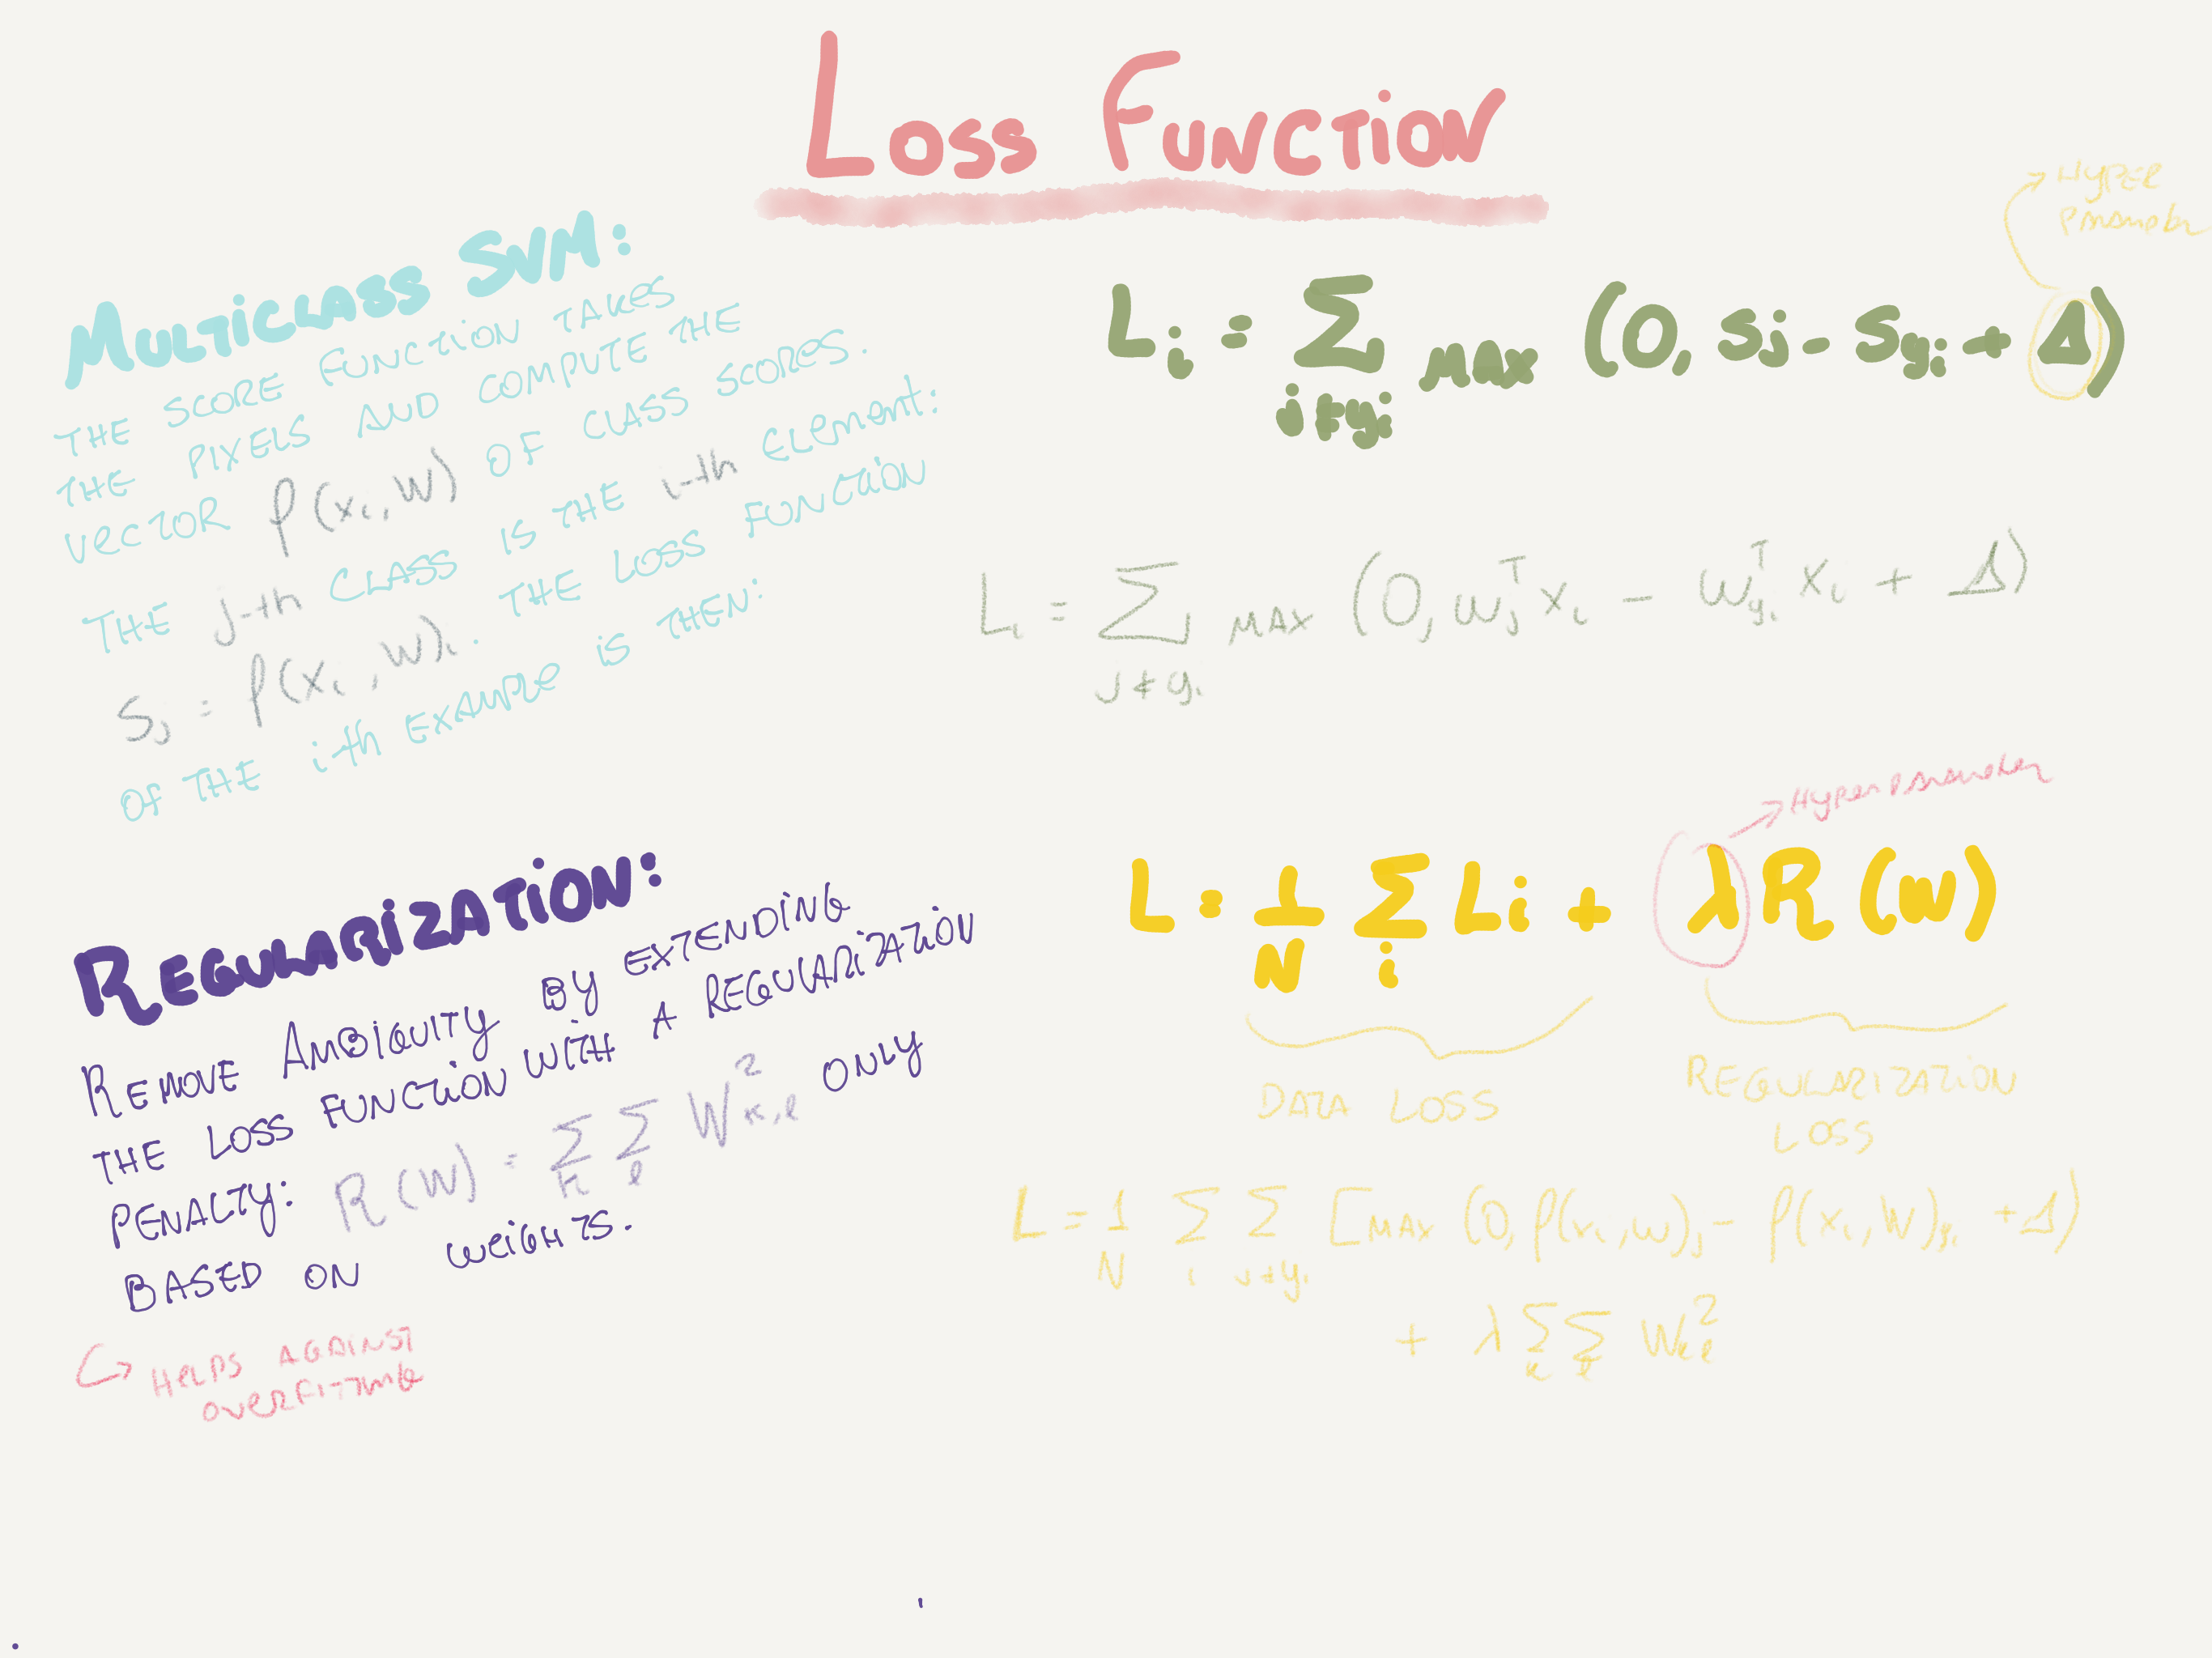 Loss Function
Multiclass SVM:
THE SCORE FUNCTION TAKES
THE PIXELS AND COMPUTE THE
VECTOR f(xᵢ, W) OF CLASS SCORES.
THE j-th CLASS IS THE i-th ELEMENT:
Sⱼ = f(xᵢ, W)ᵢ. THE LOSS FUNCTION
OF THE i-th EXAMPLE IS THEN:
HYPER
Lᵢ = Σ_{j≠yᵢ} MAX (0, sⱼ - s_{yᵢ} + Δ)
Lᵢ = Σ_{j≠yᵢ} MAX (0, wⱼᵀ xᵢ - w_{yᵢ}ᵀ xᵢ + Δ)
REGULARIZATION:
REMOVE AMBIGUITY BY EXTENDING
THE LOSS FUNCTION WITH A REGULARIZATION
PENALTY: R(W) = Σ_k Σ_l W²_{k,l} ONLY
BASED ON WEIGHTS.
HELPS AGAINST
OVERFITTING
L = 1/N Σᵢ Lᵢ + λ R(W)
DATA LOSS
REGULARIZATION
LOSS
L = 1/N Σᵢ Σ_{j≠yᵢ} [MAX (0, f(xᵢ, W)ⱼ - f(xᵢ, W)_{yᵢ} + Δ)
+ λ Σ_k Σ_l W²_{k,l}